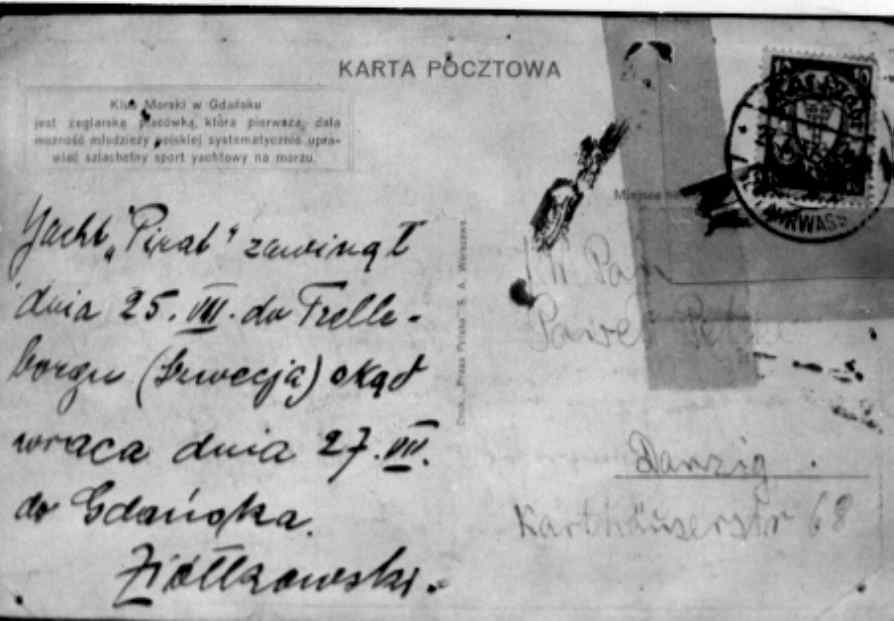 KARTA POCZTOWA
Klub Morski w Gdańsku
jest żeglarską placówką, która pierwsza dała
możność młodzieży polskiej systematycznie upra-
wiać szlachetny sport yachtowy na morzu.
Yacht „Pirat" zawinął
dnia 25. VIII. do Trelle-
borgu (Szwecja) skąd
wraca dnia 27. VIII.
do Gdańska.
Ziółkowski.
Druk. „Prasa Polska" S. A. Warszawa
Miejsce
J. W. Pan
Paweł
Danzig.
Karthäuserstr 68